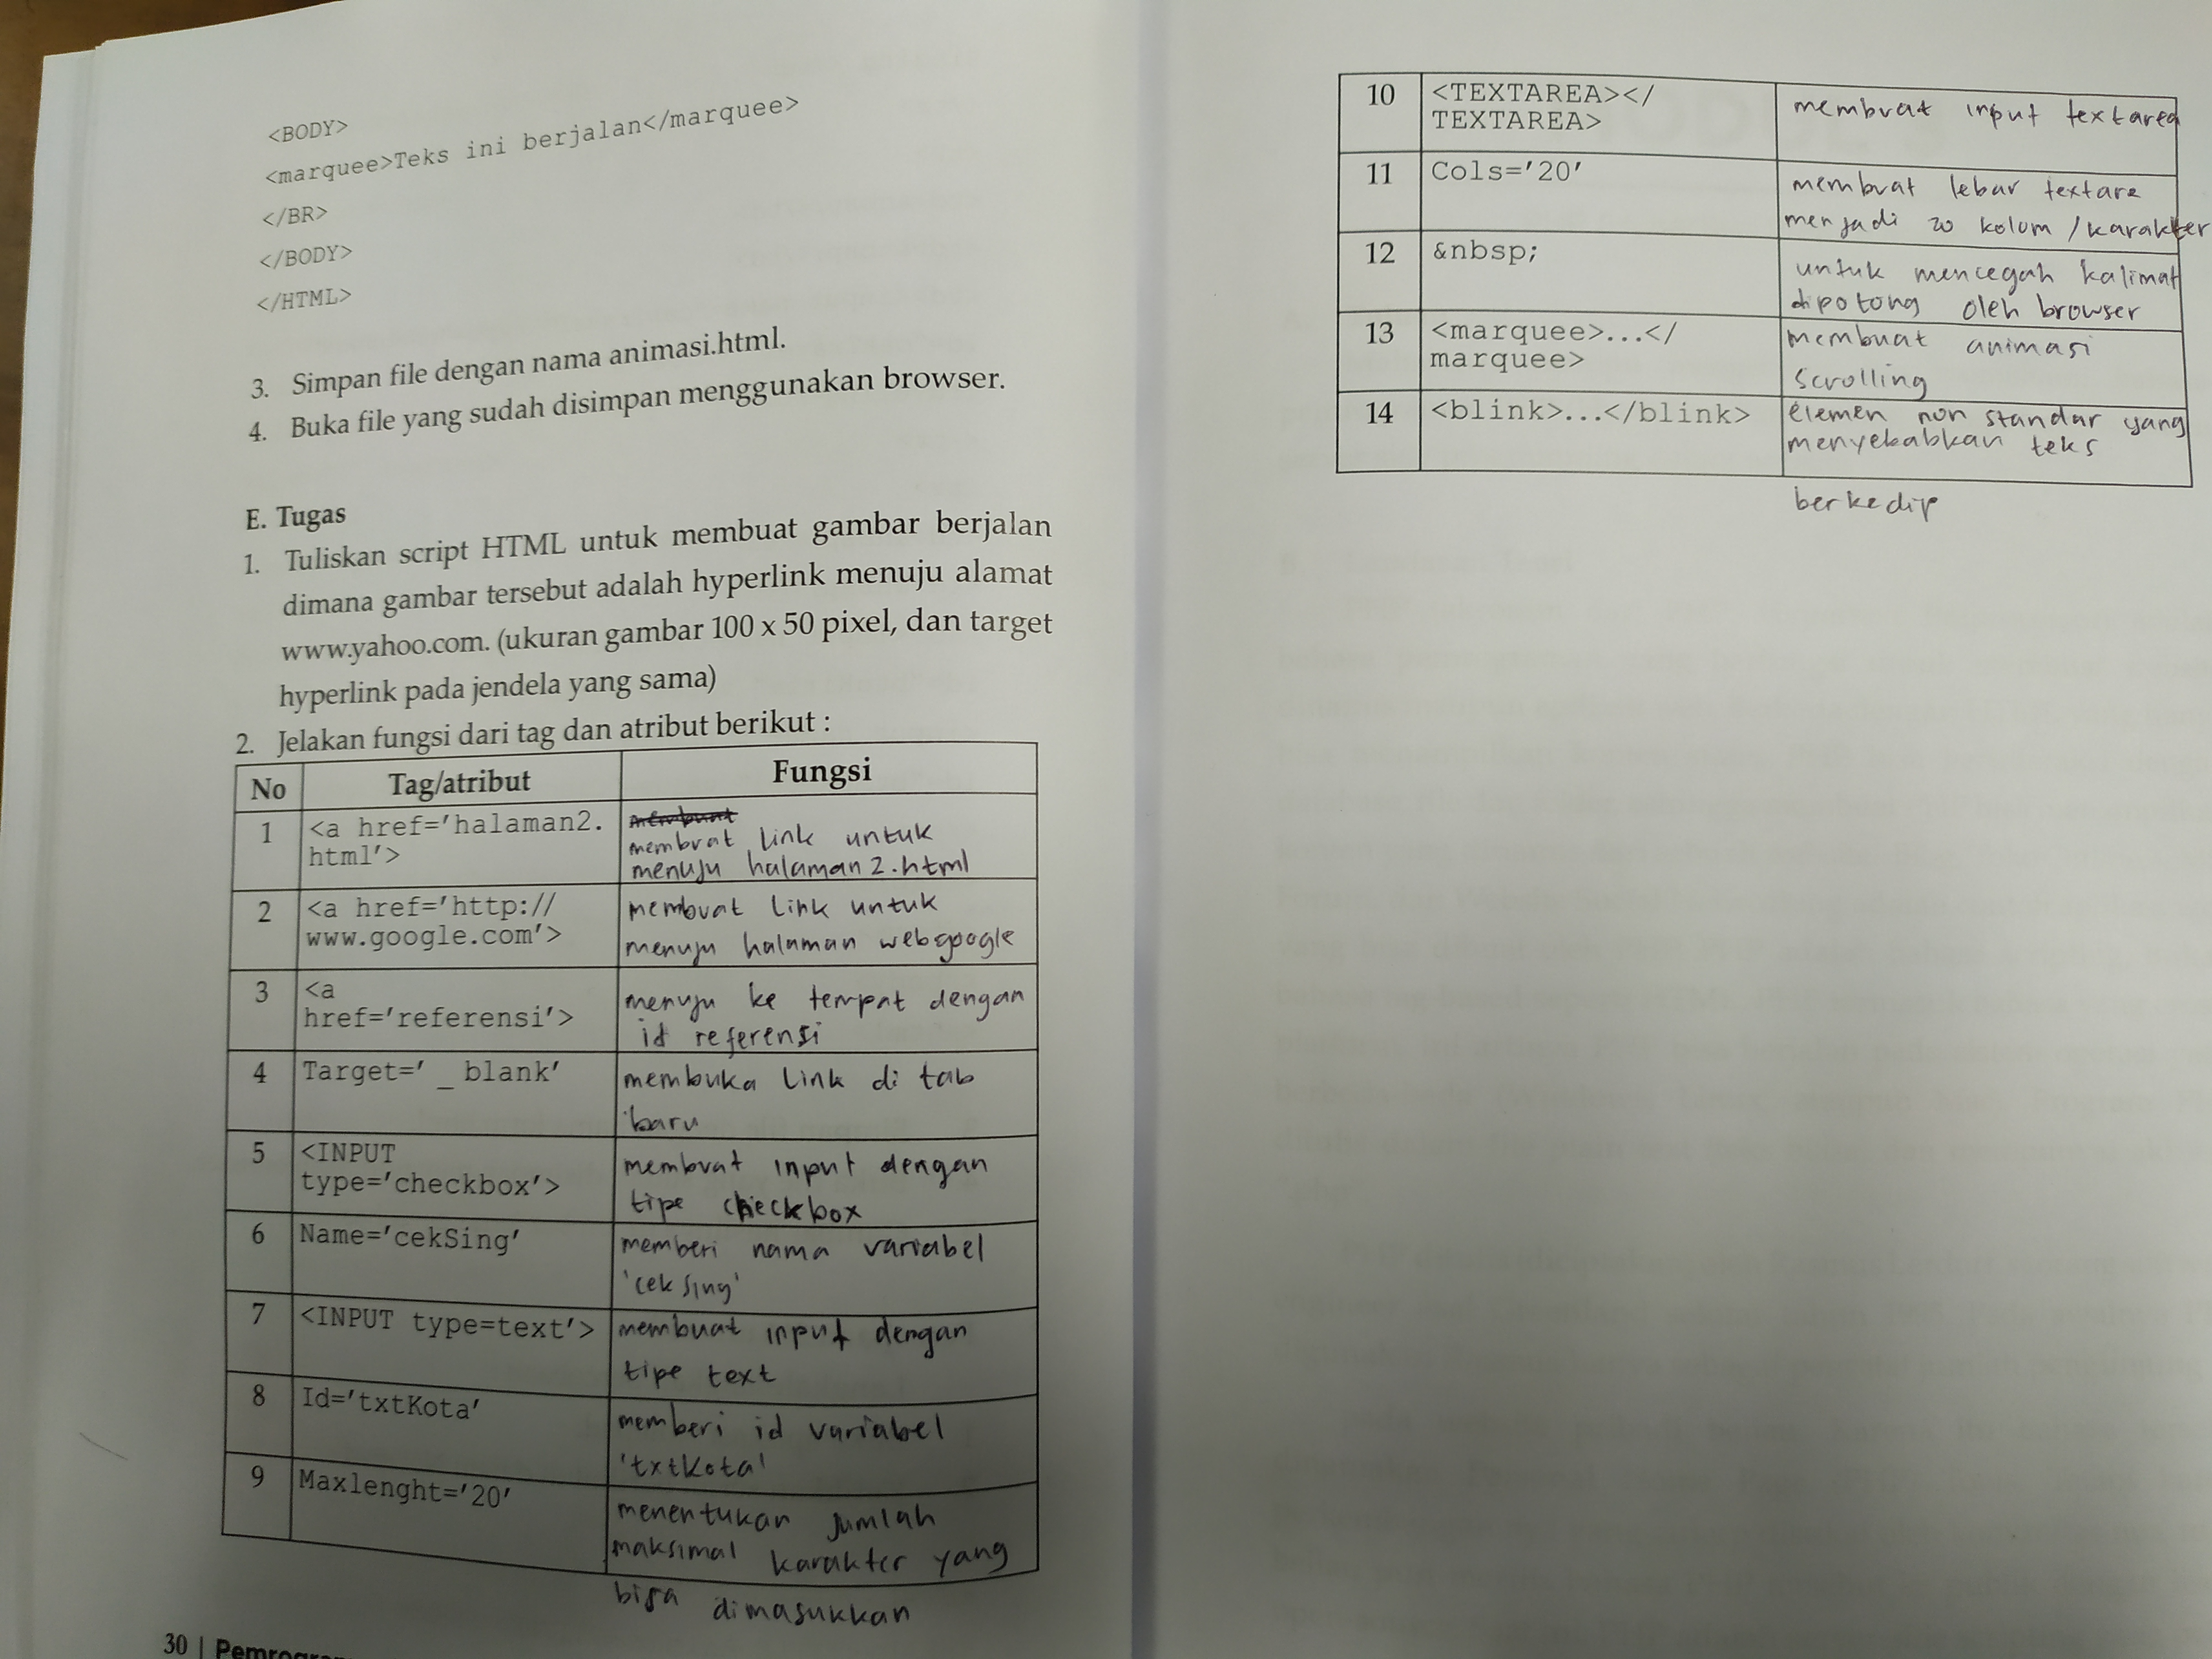 <BODY>
<marquee>Teks ini berjalan</marquee>
</BR>
</BODY>
</HTML>
3. Simpan file dengan nama animasi.html.
4. Buka file yang sudah disimpan menggunakan browser.
E. Tugas
1. Tuliskan script HTML untuk membuat gambar berjalan
dimana gambar tersebut adalah hyperlink menuju alamat
www.yahoo.com. (ukuran gambar 100 x 50 pixel, dan target
hyperlink pada jendela yang sama)
2. Jelakan fungsi dari tag dan atribut berikut :
No Tag/atribut Fungsi
1 <a href='halaman2.
html'>
membuat
membuat link untuk
menuju halaman2.html
2 <a href='http://
www.google.com'>
membuat link untuk
menuju halaman web google
3 <a
href='referensi'>
menuju ke tempat dengan
id referensi
4 Target='_blank'
membuka link di tab
baru
5 <INPUT
type='checkbox'>
membuat input dengan
tipe checkbox
6 Name='cekSing'
memberi nama variabel
'ceksing'
7 <INPUT type=text'>
membuat input dengan
tipe text
8 Id='txtKota'
memberi id variabel
'txtKota'
9 Maxlenght='20'
menentukan jumlah
maksimal karakter yang
bisa dimasukkan
30 | Pemrogram
10 <TEXTAREA></
TEXTAREA>
membuat input textarea
11 Cols='20'
membuat lebar textare
menjadi 20 kolom/karakter
12 &nbsp;
untuk mencegah kalimat
dipotong oleh browser
13 <marquee>...</
marquee>
membuat animasi
scrolling
14 <blink>...</blink>
elemen non standar yang
menyebabkan teks
berkedip